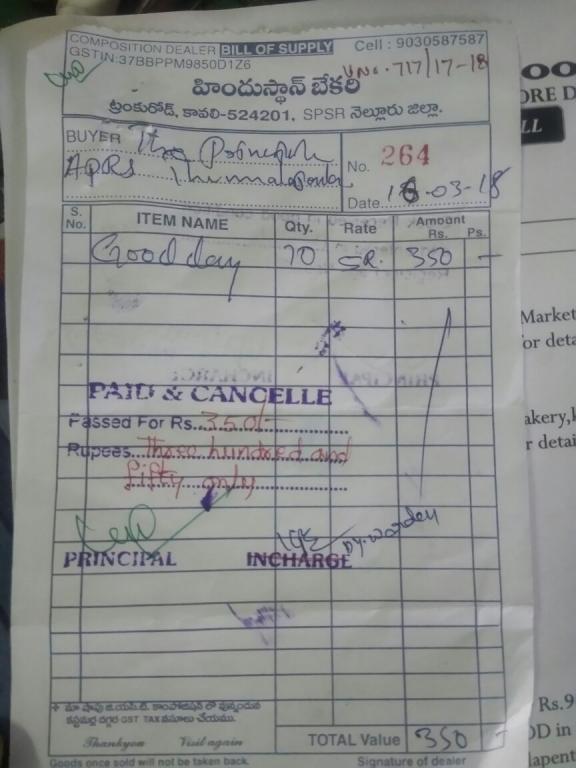 COMPOSITION DEALER BILL OF SUPPLY Cell : 9030587587
GSTIN:37BBPPM9850D1Z6
V No. 717/17-18
హిందుస్థాన్ బేకరి
ట్రంకురోడ్, కావలి-524201, SPSR నెల్లూరు జిల్లా.
BUYER The Principal
APRS
No. 264
Date 16-03-18
S. No. ITEM NAME Qty. Rate Amount Rs. Ps.
Good day 70 5R. 350 -
PAID & CANCELLE
Passed For Rs. 350/-
Rupees Three hundred and
fifty only
Dy. warden
PRINCIPAL INCHARGE
మా షాపు జి.యస్.టి. కాంపోజిషన్ లో వున్నందున
కస్టమర్ల దగ్గర GST TAX వసూలు చేయము.
Thankyou Visit again
TOTAL Value 350 -
Goods once sold will not be taken back. Signature of dealer
OO
ORE D
LL
Market
or deta
akery,
r detai
Rs.9
OD in
lapent